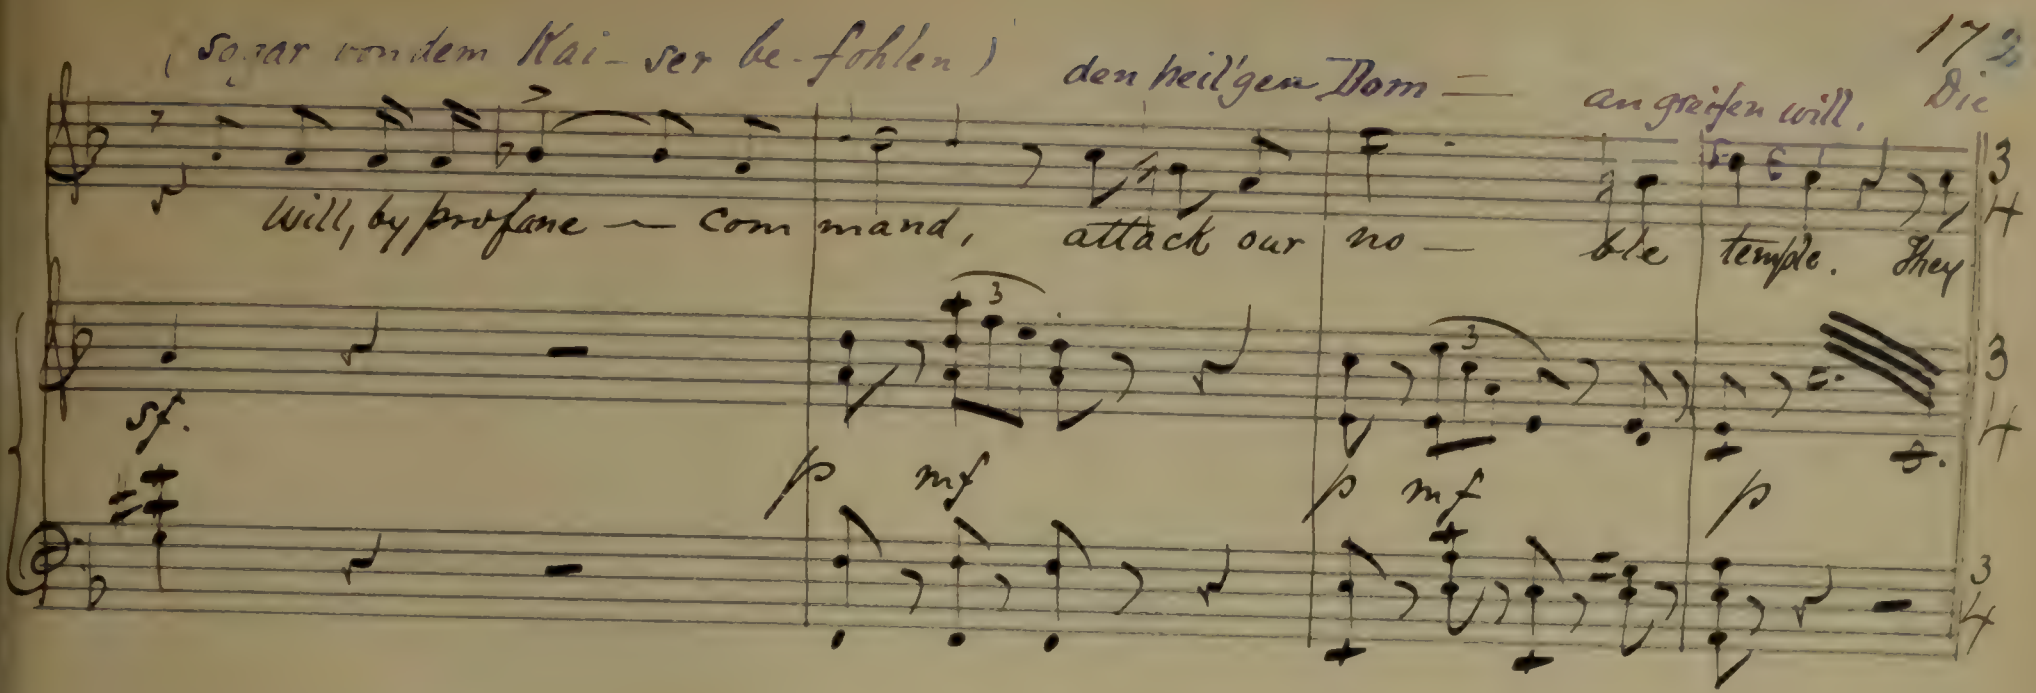 173
(sogar von dem Kai-ser be-fohlen) den heil'gen Dom — angreifen will. Die
3 4
Will, by profane — com mand, attack our no — ble temple. They
3 3
3 4
sf. p mf p mf p
3 4